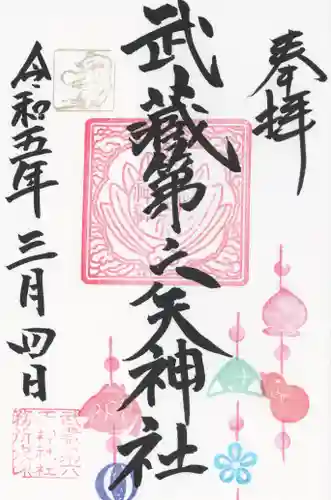 奉拝
武蔵第六天神社
令和五年三月四日